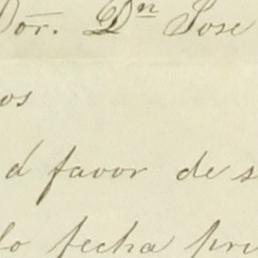 Dor. Dn Jose
os
d favor de s
lo fecha pri